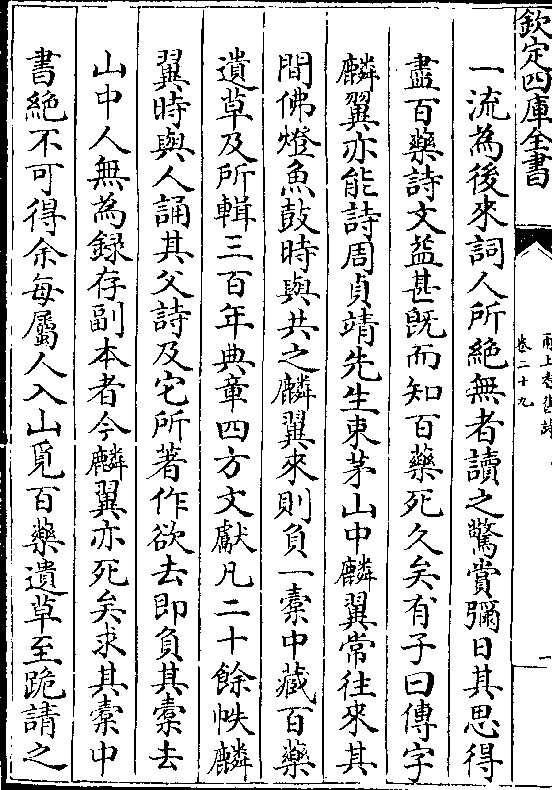 欽定四庫全書
甬上耆舊詩
卷二十九
一流為後來詞人所絶無者讀之驚賞彌日其思得
盡百藥詩文益甚既而知百藥死久矣有子曰傳字
麟翼亦能詩周貞靖先生東茅山中麟翼常往來其
間佛燈魚鼓時與共之麟翼來則負一橐中藏百藥
遺草及所輯三百年典章四方文獻凡二十餘帙麟
翼時與人誦其父詩及它所著作欲去即負其橐去
山中人無為録存副本者今麟翼亦死矣求其橐中
書絶不可得余每屬人入山覓百藥遺草至跪請之